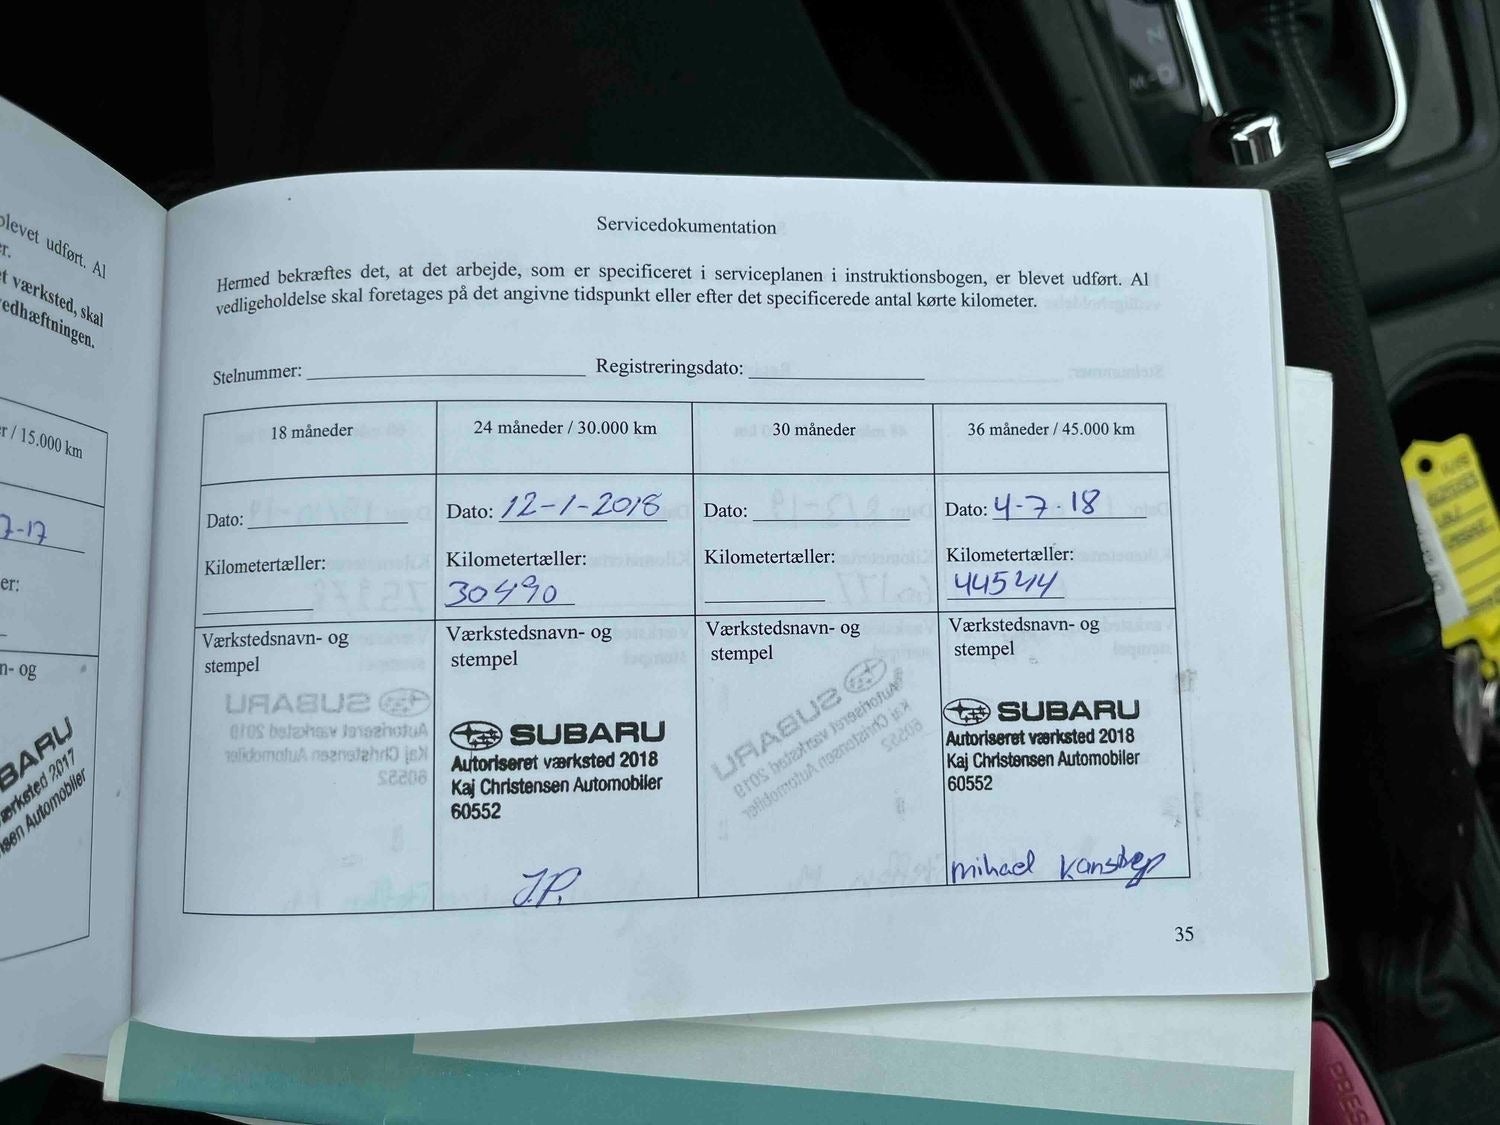 blevet udført. Al
er.
t værksted, skal
vedhæftningen.
er / 15.000 km
7-17
er:
n- og
BARU
værksted 2017
nsen Automobiler
Servicedokumentation
Hermed bekræftes det, at det arbejde, som er specificeret i serviceplanen i instruktionsbogen, er blevet udført. Al
vedligeholdelse skal foretages på det angivne tidspunkt eller efter det specificerede antal kørte kilometer.
Stelnummer: Registreringsdato:
18 måneder
Dato:
Kilometertæller:
Værkstedsnavn- og
stempel
24 måneder / 30.000 km
Dato: 12-1-2018
Kilometertæller:
30490
Værkstedsnavn- og
stempel
SUBARU
Autoriseret værksted 2018
Kaj Christensen Automobiler
60552
J.P.
30 måneder
Dato:
Kilometertæller:
Værkstedsnavn- og
stempel
36 måneder / 45.000 km
Dato: 4-7-18
Kilometertæller:
44544
Værkstedsnavn- og
stempel
SUBARU
Autoriseret værksted 2018
Kaj Christensen Automobiler
60552
mihael
35
N
PRESS